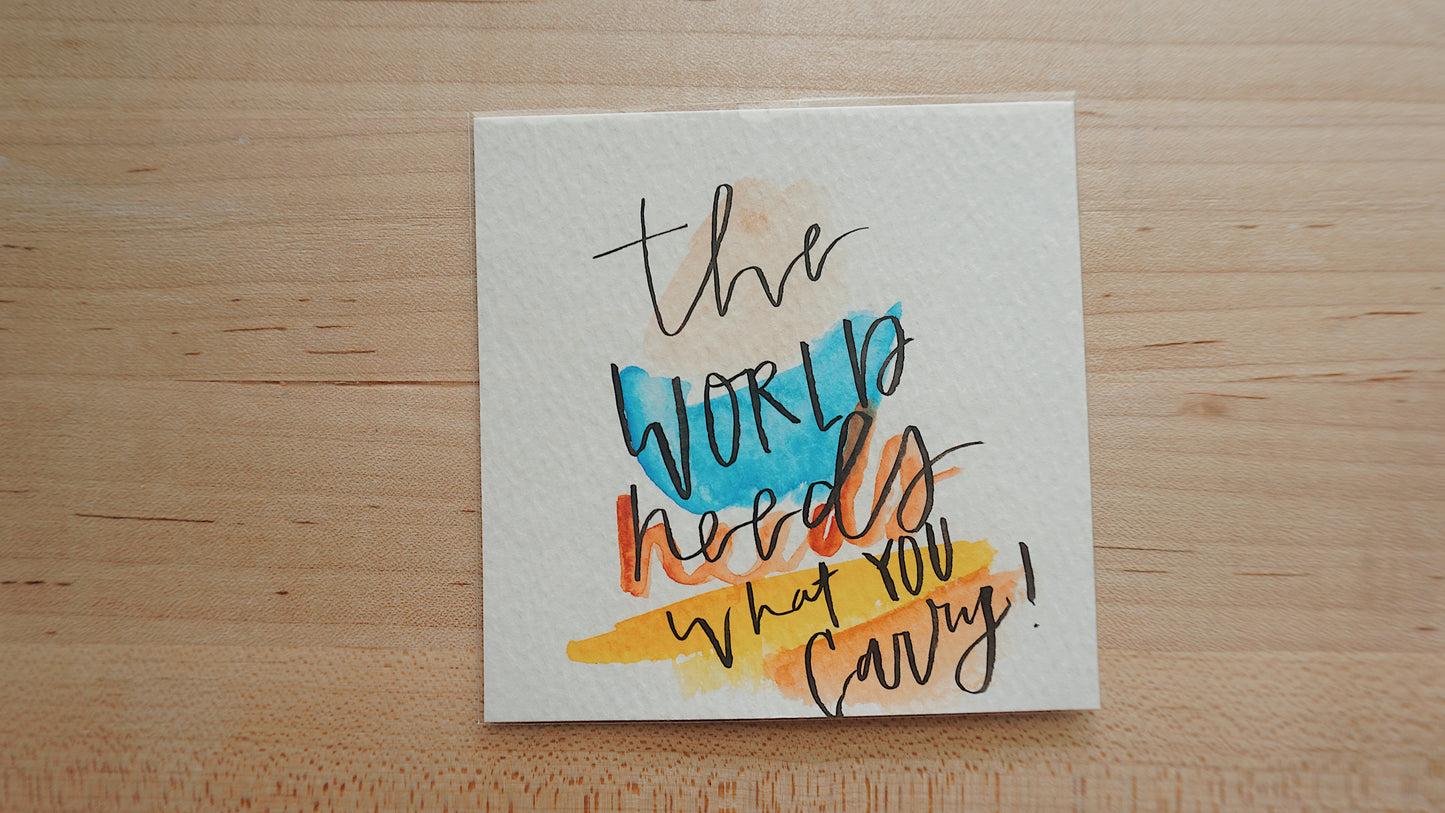 the
WORLD
needs
what YOU
carry!